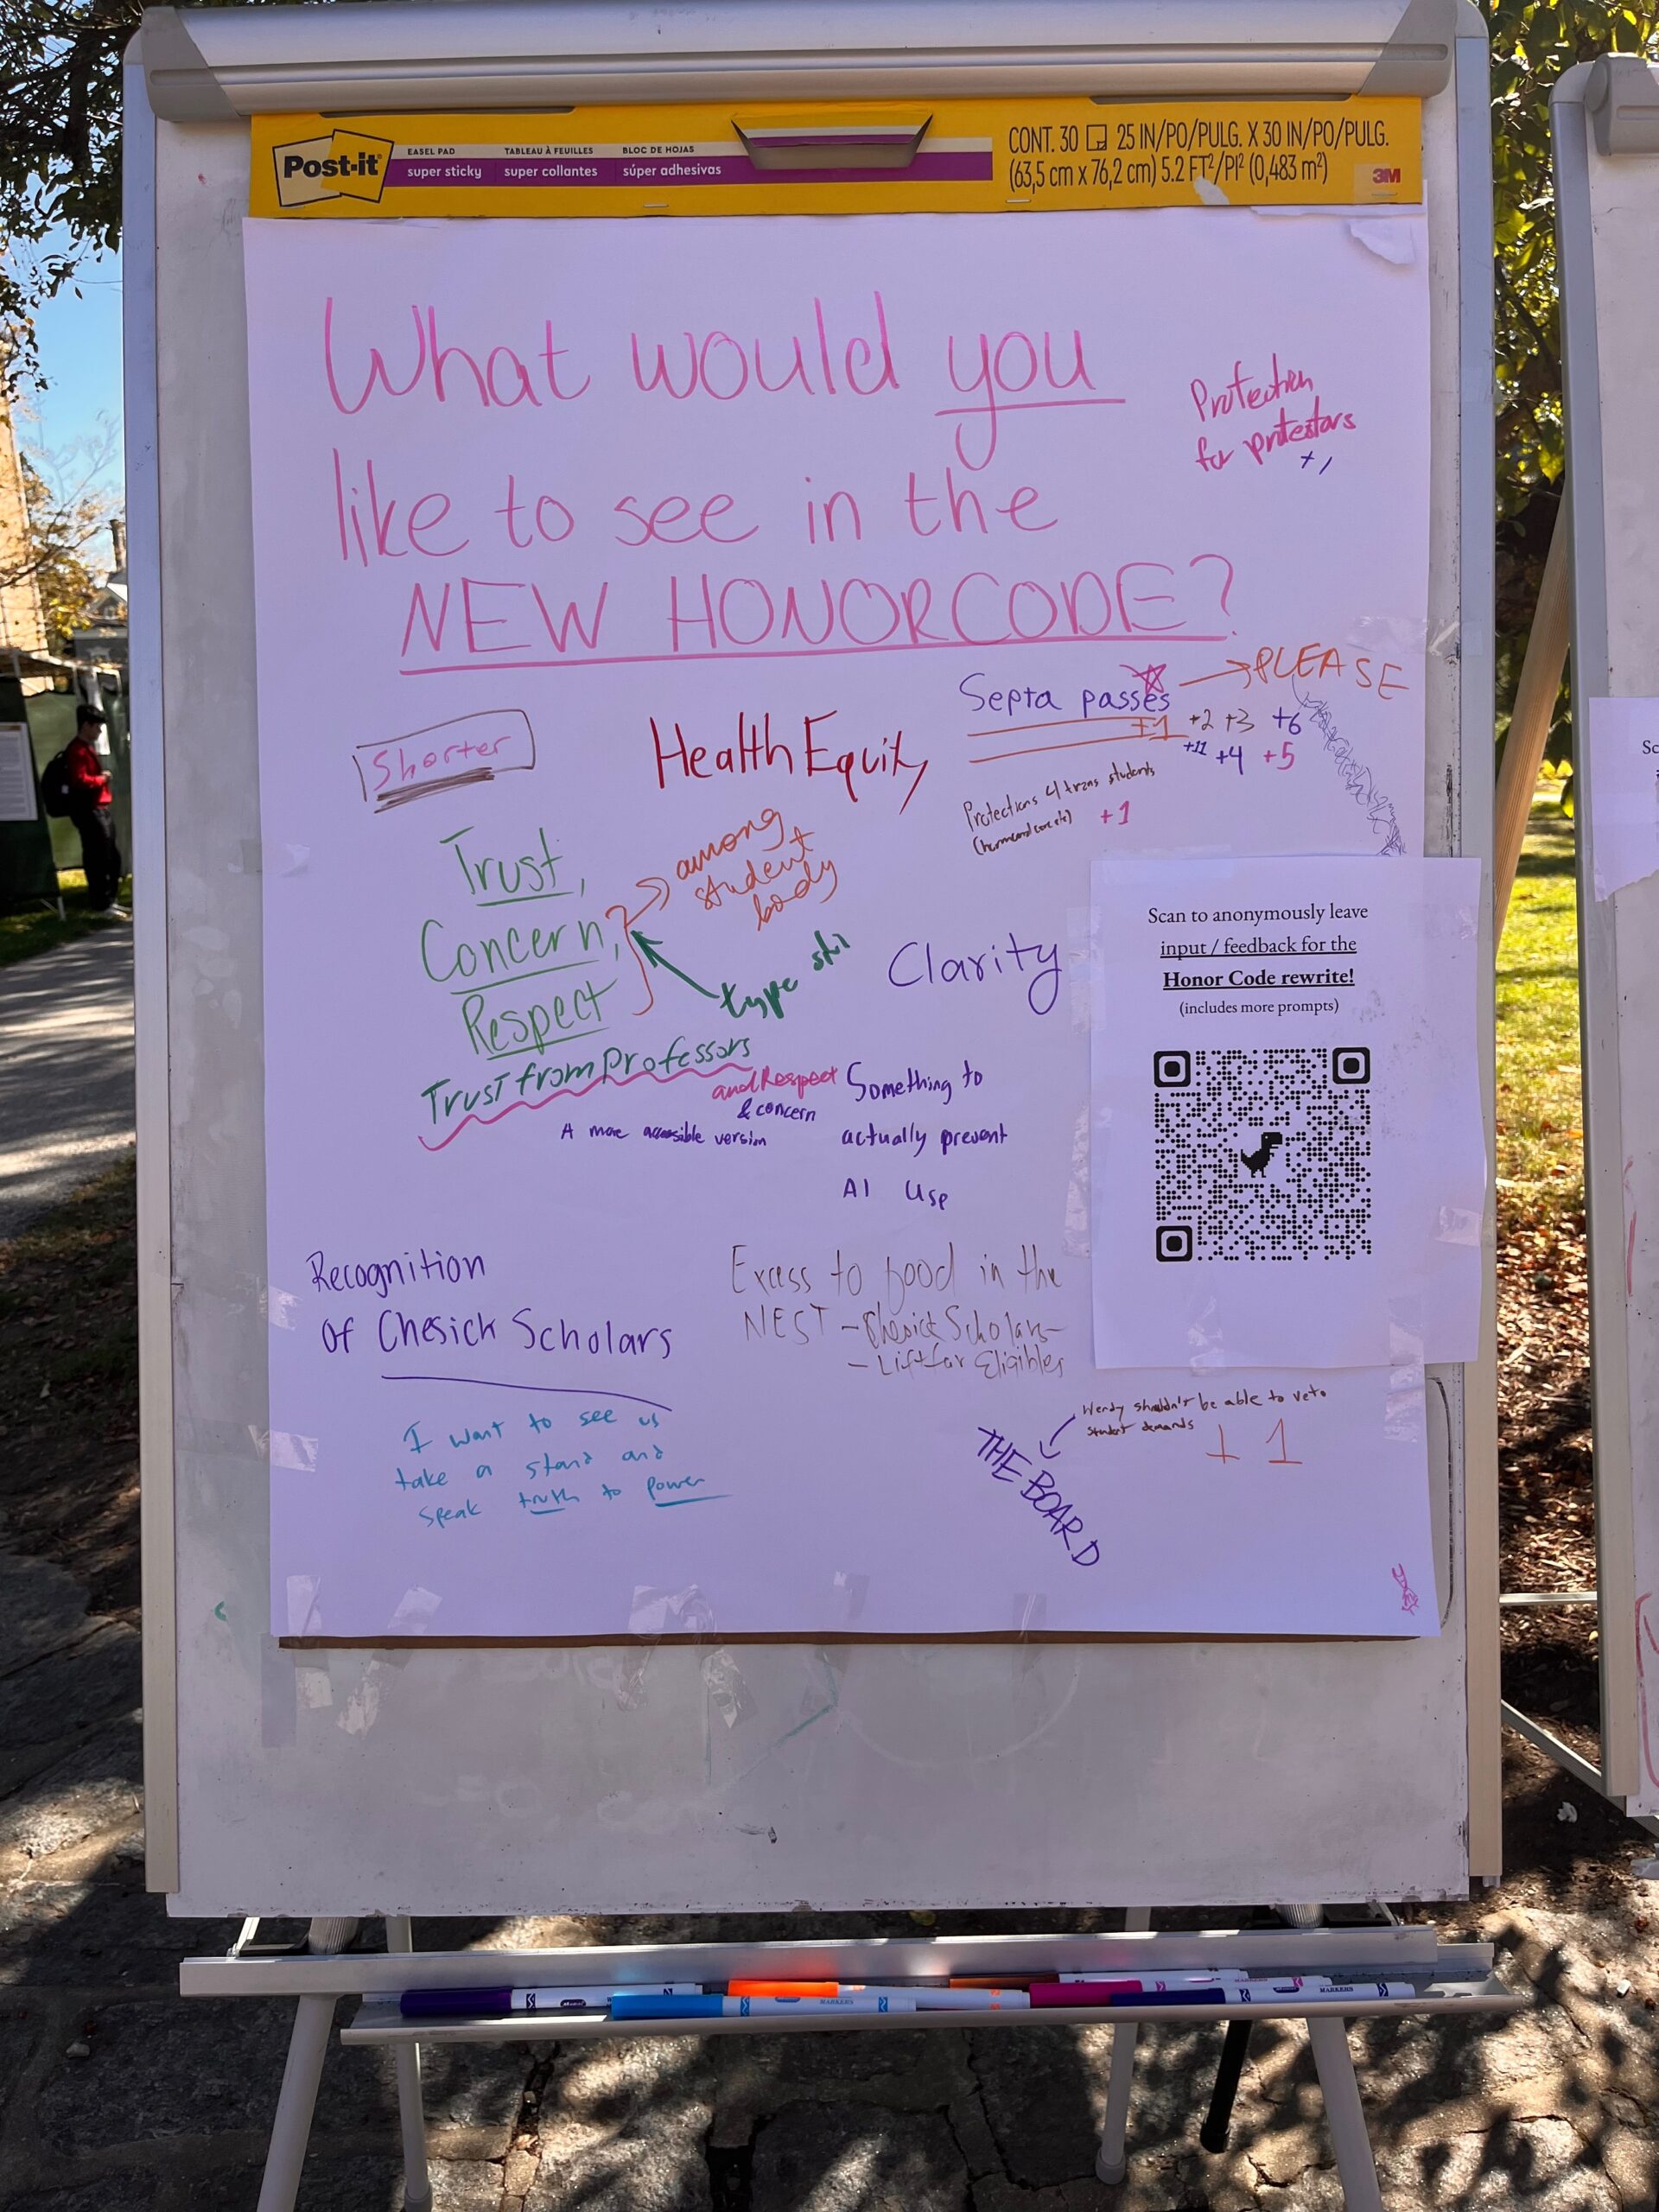 Post-it
EASEL PAD
super sticky
TABLEAU À FEUILLES
super collantes
BLOC DE HOJAS
súper adhesivas
CONT. 30 25 IN/PO/PULG. X 30 IN/PO/PULG.
(63,5 cm x 76,2 cm) 5.2 FT²/PI² (0,483 m²)
3M
What would you
like to see in the
NEW HONOR CODE?
Protection
for protestors
+1
Septa passes
PLEASE
+1 +2 +3 +6
+11 +4 +5
Shorter
Health Equity
Protections 4 trans students
+1
Trust,
Concern,
Respect
among
student
body
type shi
Clarity
Trust from Professors
and Respect
& concern
A more accessible version
Something to
actually prevent
AI Use
Scan to anonymously leave
input / feedback for the
Honor Code rewrite!
(includes more prompts)
Recognition
Of Chesick Scholars
Excess to food in the
NEST - Chesick Scholars-
- Lift for Eligibles
I want to see us
take a stand and
speak truth to power
Wendy shouldn't be able to veto
student demands
+ 1
THE BOARD
MARKERS
MARKERS
Sc